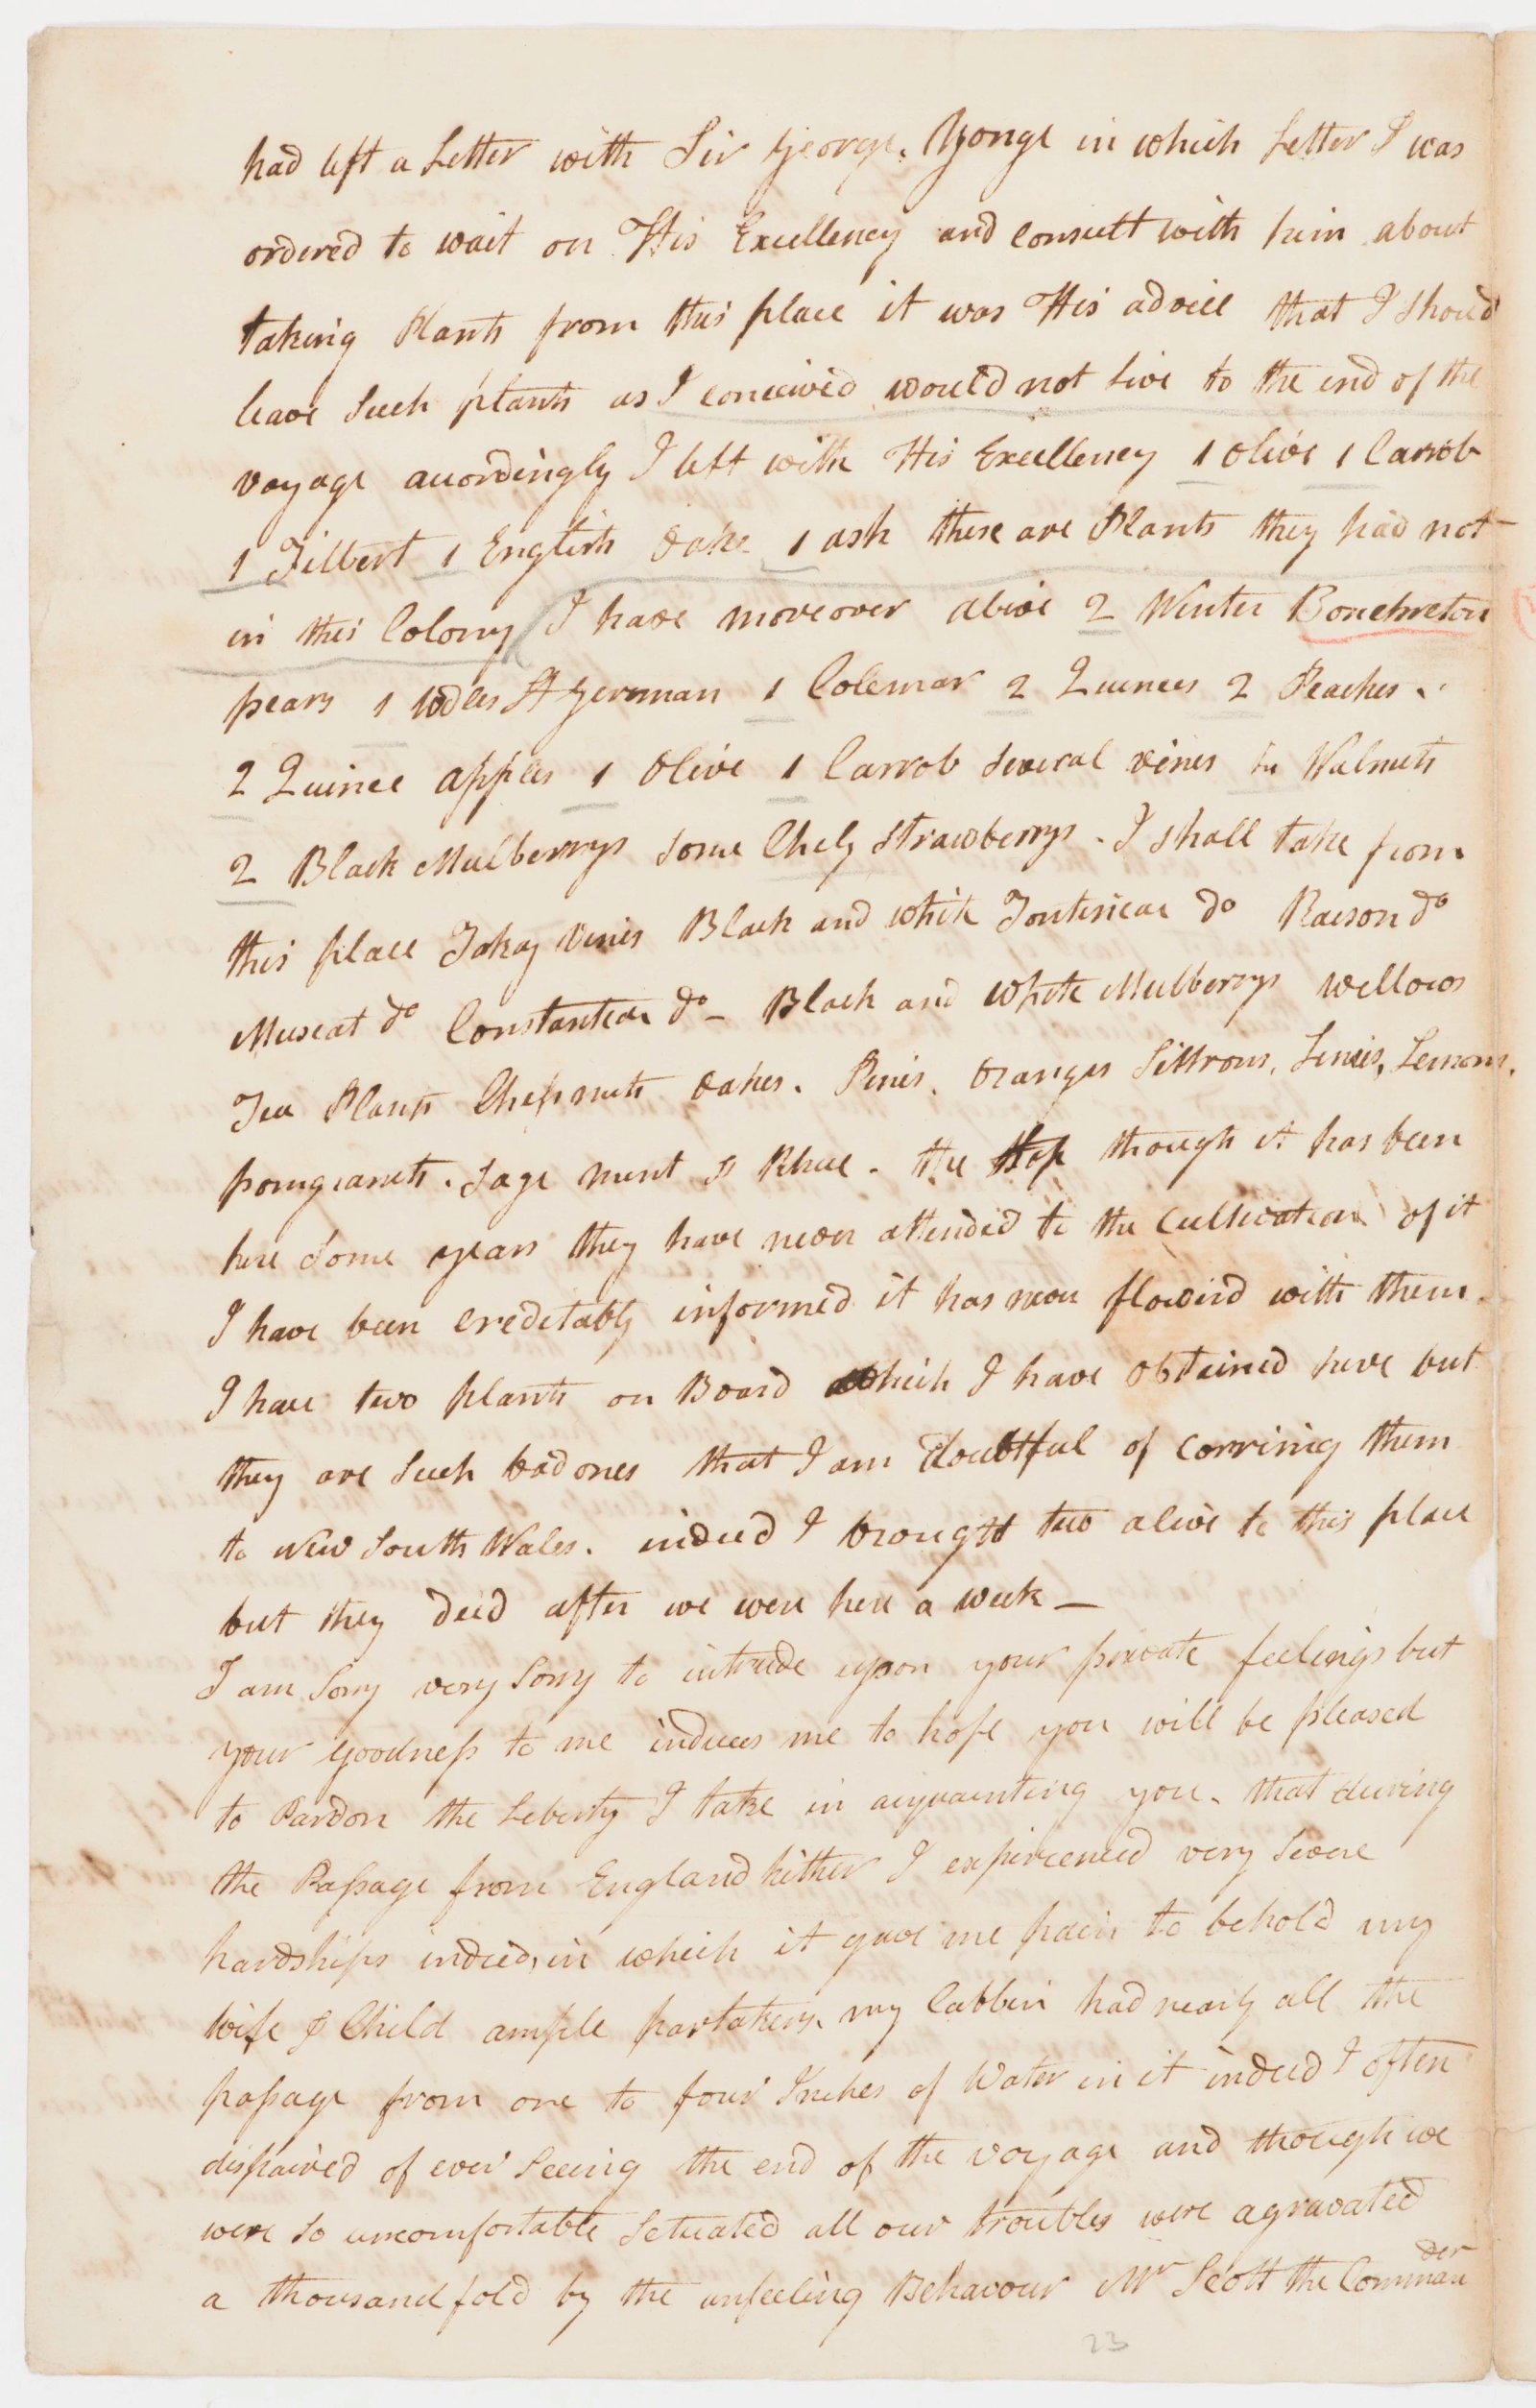 had left a Letter with Sir George Yonge in which Letter I was
ordered to wait on His Excellency and consult with him about
taking Plants from this place it was His advice that I should
leave Such plants as I conceived would not live to the end of the
voyage accordingly I left with His Excellency 1 Olive 1 Carrob
1 Filbert 1 English Oake 1 ash these are Plants they had not
in this Colony I have moreover alive 2 Winter Bonchreton
pears 1 St German 1 Colemar 2 Quinces 2 Peaches.
2 Quince apples 1 Olive 1 Carrob several vines Walnuts
2 Black Mulberrys some Chely Strawberrys. I shall take from
this place Tokay Vines Black and white Fontinicac do Raeson do
Muscat do Constantia do - Black and White Mulberrys willows
Tea Plants Chesnuts Oakes. Pines. Oranges Sittrons, Limes, Lemons,
pomgranets. Sage Mint & Rhue. the Hop though it has been
here Some years they have never attended to the Cultivation of it
I have been creditably informed it has never flowerd with them.
I have two plants on Board which I have obtained here but
they are Such bad ones that I am doubtful of carrinig them
to New South Wales. indeed I brought two alive to this place
but they deid after we were here a week —
I am Sorry very Sorry to intrude upon your private feelings but
your goodness to me induces me to hope you will be pleased
to Pardon the Leberty I take in acquainting you. that during
the Passage from England hither I experienced very Severe
hardships indeed, in which it gave me pain to behold my
wife & Child ample partakers, my Cabbin had nearly all the
passage from one to four Inches of Water in it indeed I often
dispaired of ever Seeing the end of the voyage and though we
were So uncomfortable Setuated all our troubles were agravated
a thousand fold by the unfeeling Behavour Mr Scott the Commander
23